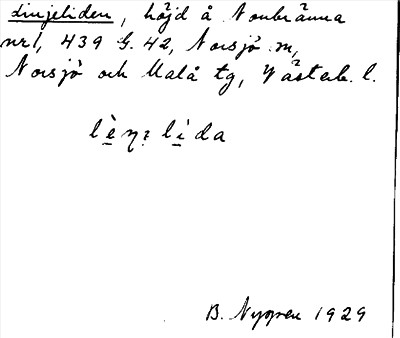 Linjeliden, höjd å Norrbränna
nr 1, 439 G. 42, Norsjö sn,
Norsjö och Malå tg, Västerb. l.
B. Nygren 1929